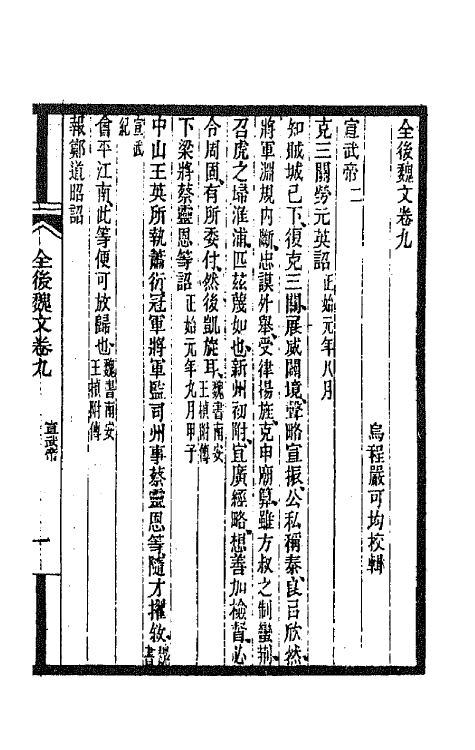 全後魏文卷九
烏程嚴可均校輯
宣武帝二
克三關勞元英詔 正始元年八月
知賊城已下、復克三關、展威闢境、聲略宣振、公私稱泰、良㠯欣然、
將軍淵規內斷、忠謨外舉、受律揚旌、克申廟算、雖方叔之制蠻荆、
召虎之埽淮浦、匹茲蔑如也、新州初附、宜廣經略、想善加檢督、必
令周固、有所委付、然後凱旋耳、魏書南安王楨附傳
下梁將蔡靈恩等詔 正始元年九月甲子
中山王英所執蕭衍冠軍將軍監司州事蔡靈恩等、隨才擢敘、魏書
宣武紀
會平江南、此等便可放歸也、魏書南安王楨附傳
報鄭道昭詔
全後魏文卷九
宣武帝
一